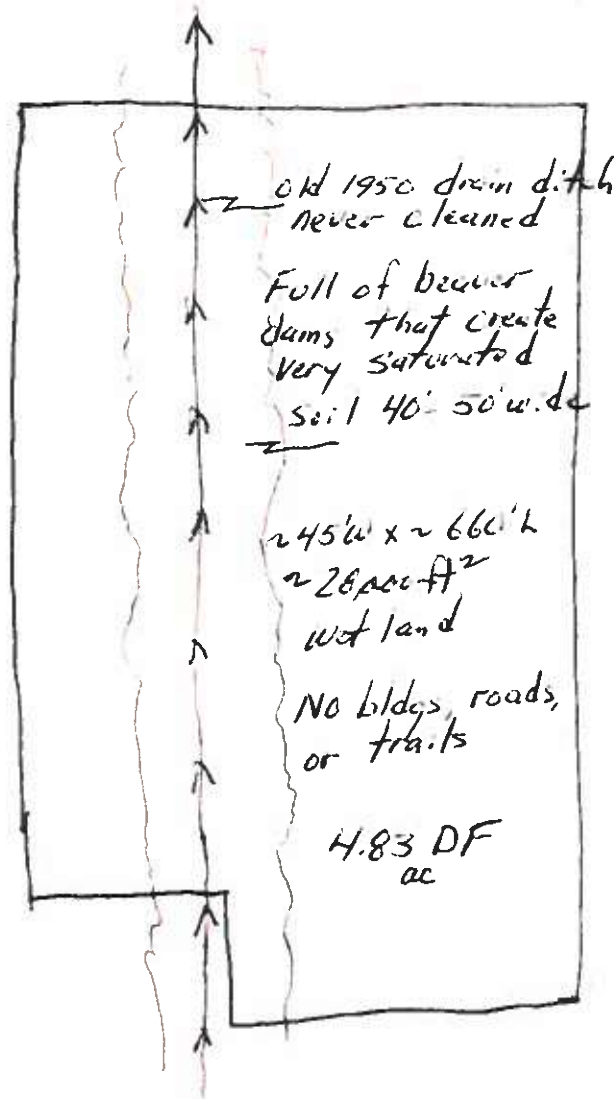 old 1950 drain ditch
never cleaned
Full of beaver
dams that create
very saturated
soil 40'-50' wide
~45'W x ~660'L
ft²
wetland
No bldgs, roads,
or trails
4.83 DF
ac